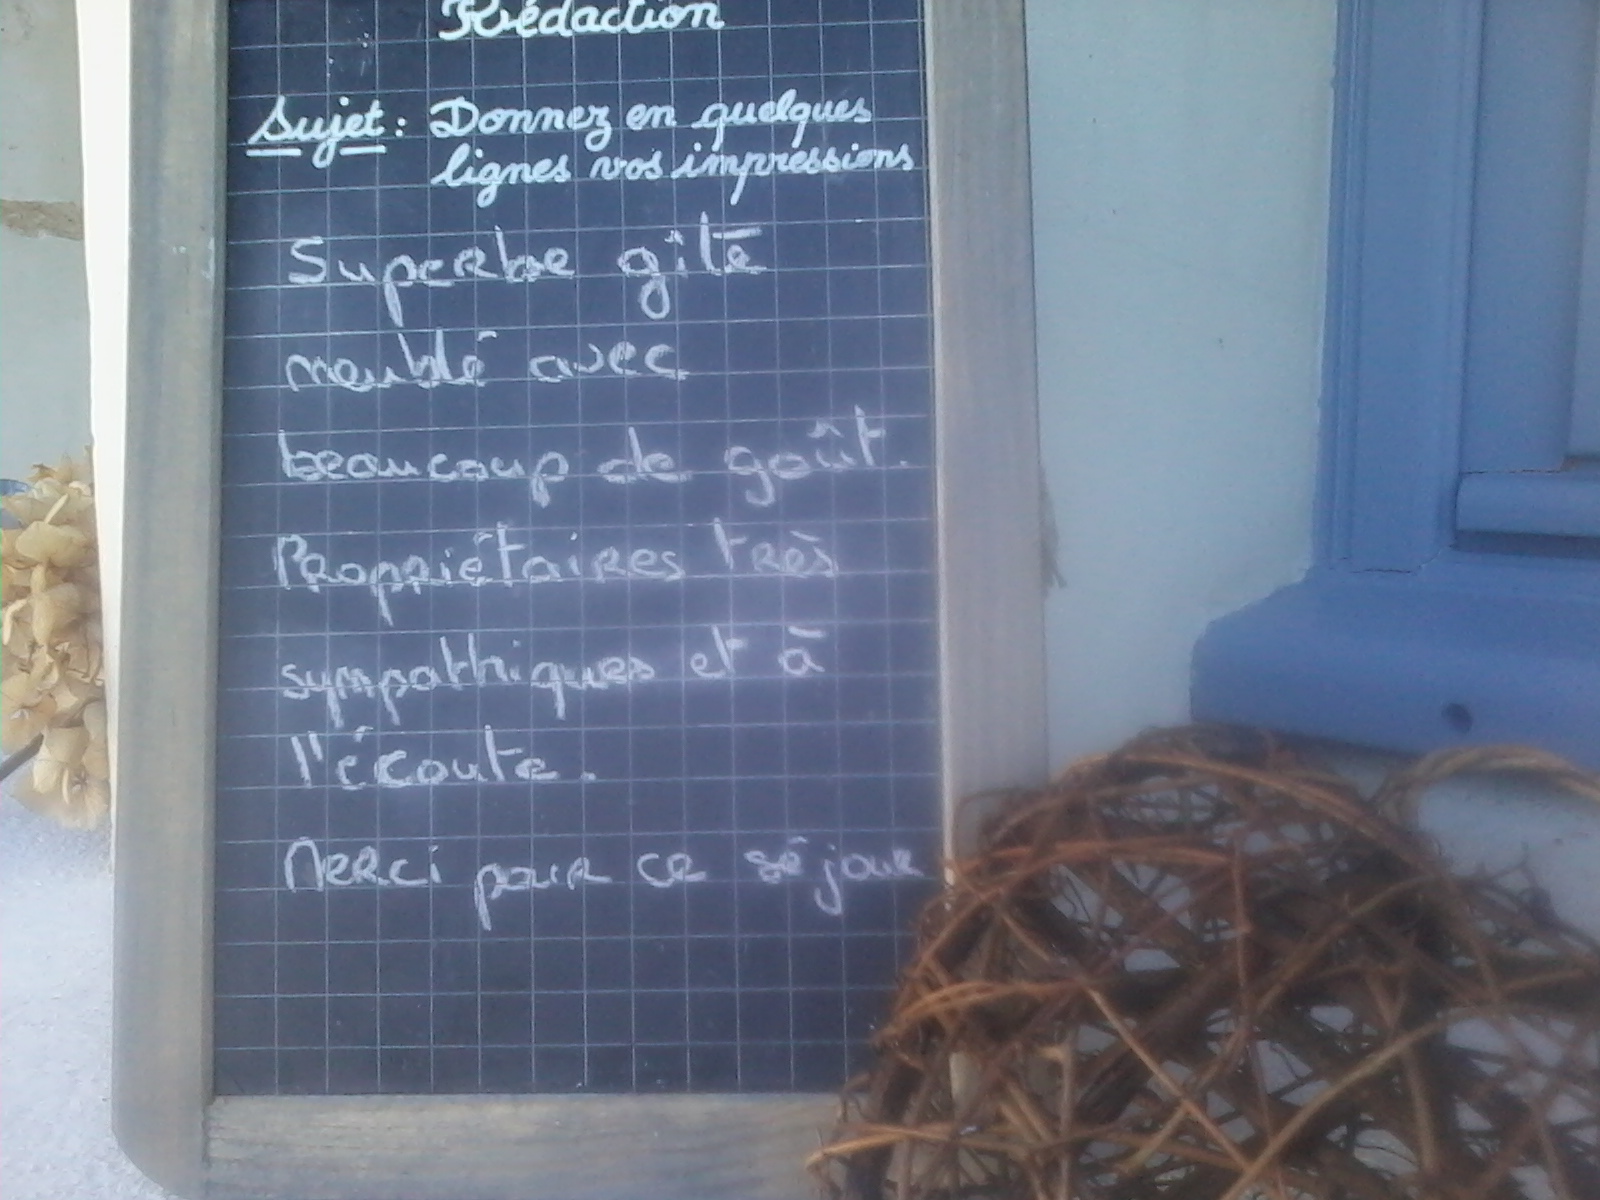 Rédaction
Sujet : Donnez en quelques
lignes vos impressions
Superbe gîte
meublé avec
beaucoup de goût.
Propriétaires très
sympathiques et à
l'écoute.
Merci pour ce séjour